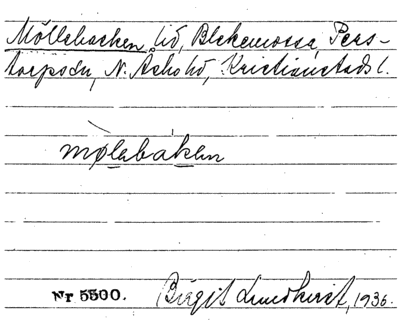 Möllebacken, lid, Blekemossa, Pers-
torpsdn, N. Åsbo hd, Kristianstads l.
mølebaken
Nr 5500. Birgit Lundkvist, 1936.